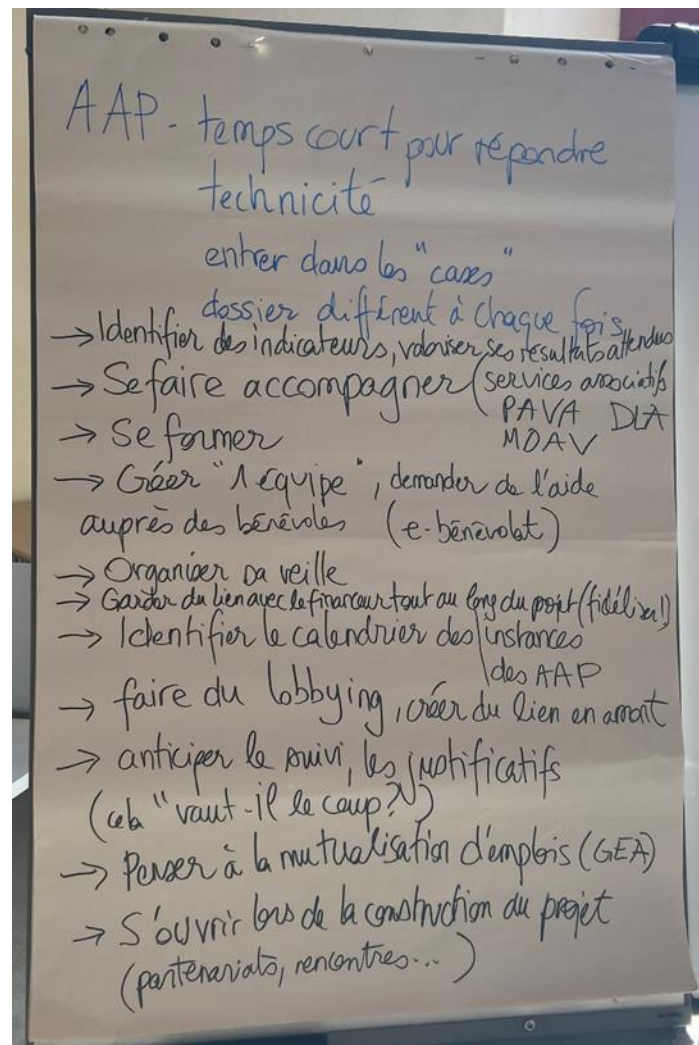 AAP - temps court pour répondre
technicité
entrer dans les "cases"
dossier différent à chaque fois
→ Identifier des indicateurs, valoriser ses résultats attendus
→ Se faire accompagner (services associatifs
PAVA DLA
MDAV
→ Se former
→ Gérer "1 équipe", demander de l'aide
auprès des bénévoles (e-bénévolat)
→ Organiser sa veille
→ Garder du lien avec le financeur tout au long du projet (fidéliser!)
→ Identifier le calendrier des instances
des AAP
→ faire du lobbying, créer du lien en amont
→ anticiper le suivi, les justificatifs
(cela "vaut-il le coup?")
→ Penser à la mutualisation d'emplois (GEA)
→ S'ouvrir lors de la construction du projet
(partenariats, rencontres...)